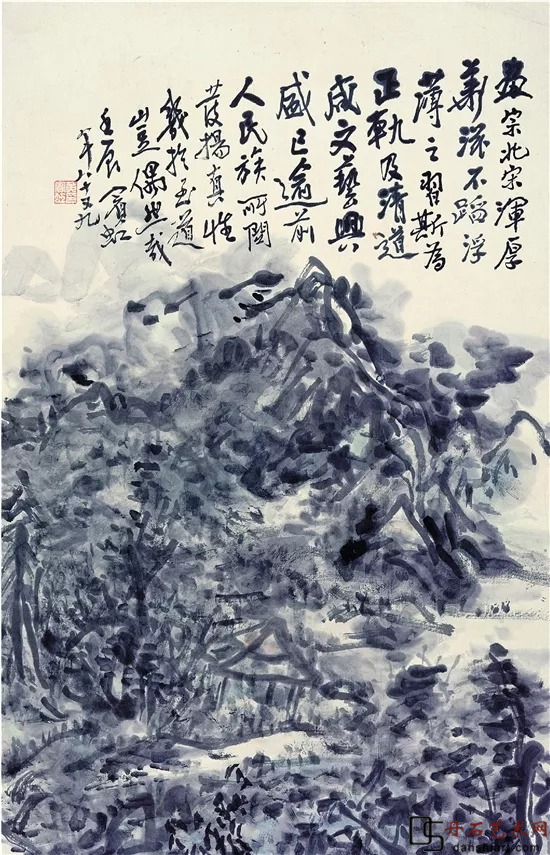 畫宗北宋渾厚
華滋不蹈浮
薄之習斯為
正軌及清道
咸文藝興
盛已逾前
人民族所關
發揚真性
幾於至道
豈偶然哉
壬辰賓虹
年八十又九
丹石艺术网
danshiart.com